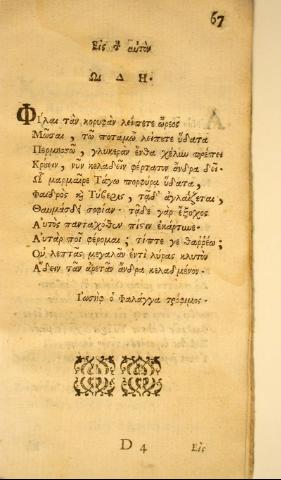 67
Εἰς τ̀ αὐτὸν
ΩΔΗ.
Φίλαι τὰν κορυφὰν λείπετε ὤρεος
Μῶσαι, τῶ ποταμῶ λείπετε ὕδατα
Περμησσῶ, γλυκερὰν ἔνθα χέλυν πρέπει
νῦν κελαδεῖν φέρτατον ἄνδρα
Ὧ μαρμαίρε Τάγω πορφύρα ὕδατα,
Φαιδρὸς καὶ Τίβερις, τᾷδε ἀγλαΐζεται,
Θαυμάσδει σοφίαν· τᾷδε γὰρ ἔξοχος
Αὐτὸς πανταχόθεν πίσιν ἐκάρτυνε·
Αὐτάρ ποῖ φέρομαι; τίπτε γε θαῤῥέω;
Οὐ λεπτᾶς μεγάλαν ἐντὶ λύρας κλυτὸν
Ἄδειν τὰν ἀρετὰν ἄνδρα κελαδμένον.
Ἰωσὴφ ὁ Φαλάγγα τρόφιμος.
D 4
Εἰς